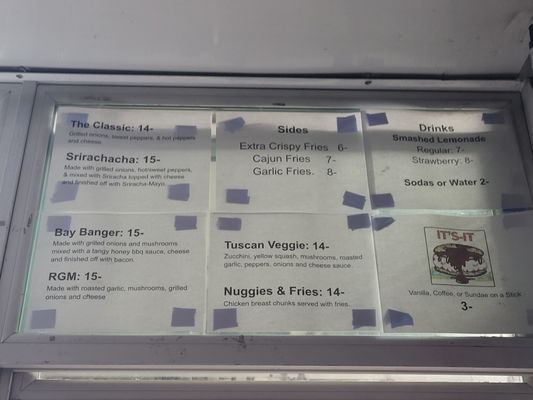 The Classic: 14-
Grilled onions, sweet peppers, & hot peppers
and cheese
Srirachacha: 15-
Made with grilled onions, hot/sweet peppers,
& mixed with Sriracha topped with cheese
and finished off with Sriracha-Mayo.
Sides
Extra Crispy Fries 6-
Cajun Fries 7-
Garlic Fries. 8-
Drinks
Smashed Lemonade
Regular: 7-
Strawberry: 8-
Sodas or Water 2-
Bay Banger: 15-
Made with grilled onions and mushrooms
mixed with a tangy honey bbq sauce, cheese
and finished off with bacon.
RGM: 15-
Made with roasted garlic, mushrooms, grilled
onions and cheese
Tuscan Veggie: 14-
Zucchini, yellow squash, mushrooms, roasted
garlic, peppers, onions and cheese sauce.
Nuggies & Fries: 14-
Chicken breast chunks served with fries.
IT'S-IT
Vanilla, Coffee, or Sundae on a Stick
3-